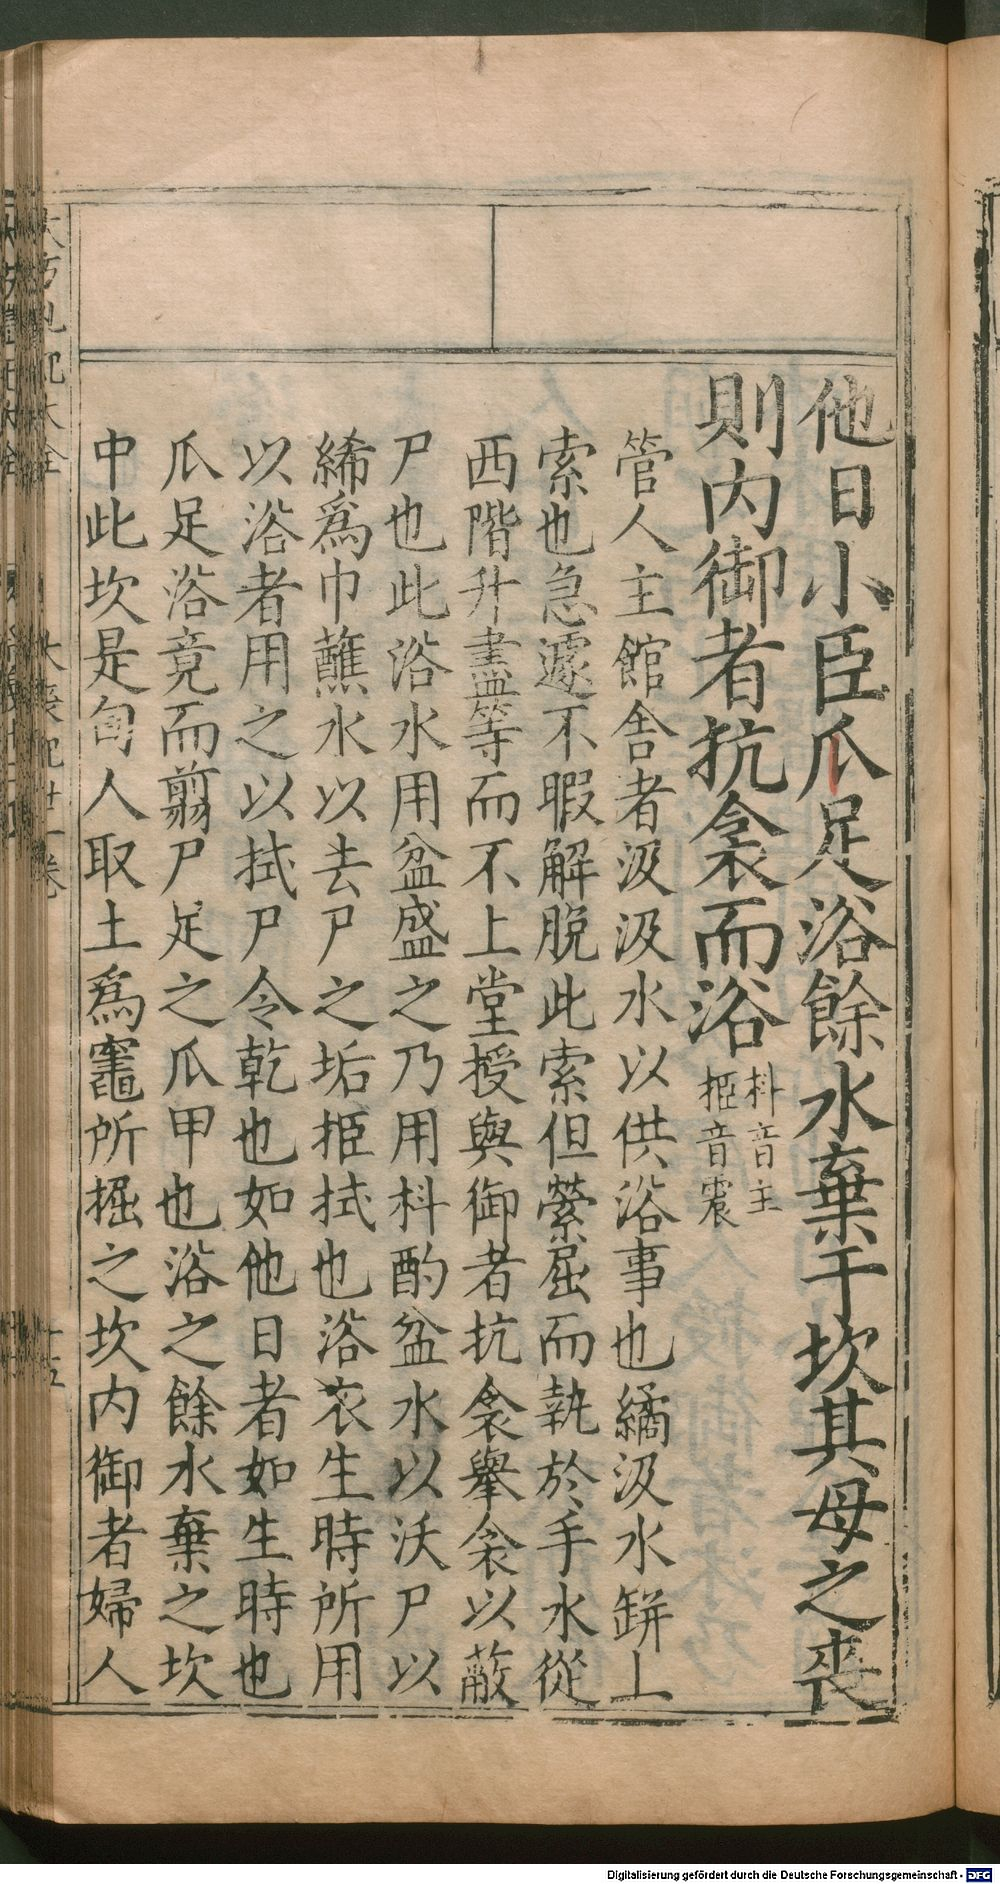 他日小臣爪足浴餘水棄于坎其母之喪
則内御者抗衾而浴
枓音主
挋音震
管人主館舎者汲汲水以供浴事也繘汲水缾上
索也急遽不暇解脫此索但縈屈而執於手水從
西階升盡等而不上堂授與御者抗衾舉衾以蔽
尸也此浴水用盆盛之乃用枓酌盆水以沃尸以
絺爲巾蘸水以去尸之垢挋拭也浴衣生時所用
以浴者用之以拭尸令乾也如他日者如生時也
爪足浴竟而翦尸足之爪甲也浴之餘水棄之坎
中此坎是甸人取土爲竈所掘之坎内御者婦人
Digitalisierung gefördert durch die Deutsche Forschungsgemeinschaft - DFG